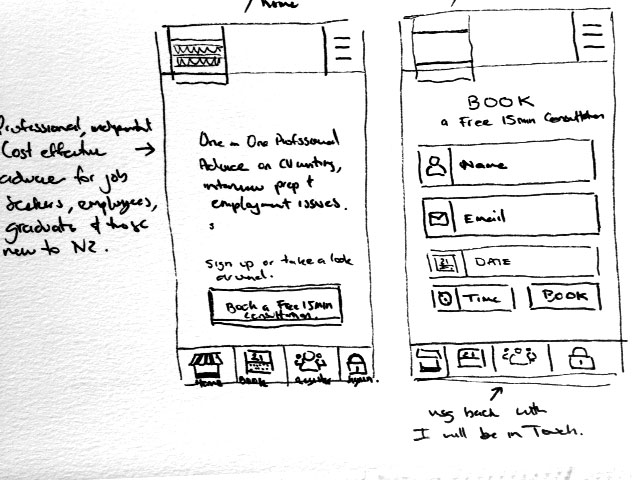 / Home
Professional, independent
Cost effective
advice for job
Seekers, employees,
graduate & those
new to NZ.
One on One Professional
Advice on CV writing,
interview prep &
employment issues.
Sign up or take a look
around.
Book a Free 15min
Consultation.
Home
Book
Register
Sign in
BOOK
a Free 15min Consultation
Name
Email
31
DATE
Time
BOOK
msg back with
I will be in Touch.